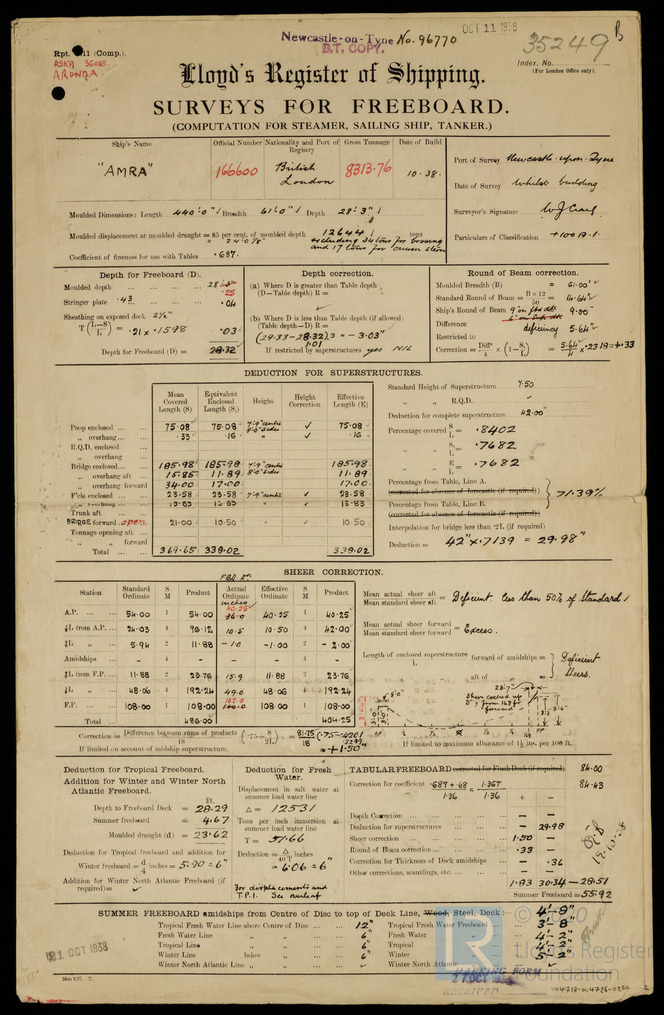 Newcastle-on-Tyne No. 96770
OCT 11 1938
B.T. COPY.
35249
Rpt. 11 (Comp.)
ARONDA
Index No.
(For London Office only).
Lloyd's Register of Shipping.
SURVEYS FOR FREEBOARD.
(COMPUTATION FOR STEAMER, SAILING SHIP, TANKER.)
Ship's Name
Official Number
Nationality and Port of Registry
Gross Tonnage
Date of Build
"AMRA"
166600
British London
8313.76
10.38.
Port of Survey Newcastle-upon-Tyne
Date of Survey Whilst building
Surveyor's Signature W J Craig
Particulars of Classification +100 A.1.
Moulded Dimensions: Length 440'0" Breadth 61'0" Depth 28'3"
Moulded displacement at moulded draught = 85 per cent. of moulded depth 12644 tons
excluding 34 tons for bossing and 17 tons for cruiser stern
Coefficient of fineness for use with Tables .687.
Depth for Freeboard (D).
Moulded depth
.25
Stringer plate .43 .04
Sheathing on exposed deck 2½"
T (L-S / L) = .21 x .1598 .03
Depth for Freeboard (D) = 28.32
Depth correction.
(a) Where D is greater than Table depth
(D—Table depth) R =
(b) Where D is less than Table depth (if allowed)
(Table depth—D) R =
(29.33-28.32).3 = -3.03"
1.01
If restricted by superstructures yes Nil
Round of Beam correction.
Moulded Breadth (B) = 61.00'
Standard Round of Beam = B x 12 / 50 = 14.64
Ship's Round of Beam = 9.00"
Difference deficiency 5.64
Restricted to
Correction = Diff / 4 x (1 - S₁ / L) = 5.64 / 4 x .2318 = +.33
DEDUCTION FOR SUPERSTRUCTURES.
Mean Covered Length (S)
Equivalent Enclosed Length (S₁)
Height
Height Correction
Effective Length (E)
Poop enclosed 75.08 75.08 7'-9" centre 8'-0" sides ✓ 75.08
„ overhang .33 .16 " ✓ .16
R.Q.D. enclosed
„ overhang
Bridge enclosed 185.98 185.98 7'-9" centre 8'-0" sides 185.98
„ overhang aft 15.85 11.89 11.89
„ overhang forward 34.00 17.00 17.00
F'cle enclosed 23.58 23.58 7'-9" centre ✓ 23.58
„ overhang 13.83 13.83 ✓ 13.83
Trunk aft
BRIDGE forward open 21.00 10.50 ✓ 10.50
Tonnage opening aft
„ „ forward
Total 369.65 338.02 338.02
Standard Height of Superstructure 7.50
„ „ R.Q.D. ✓
Deduction for complete superstructure 42.00
Percentage covered S / L = .8402
„ S₁ / L = .7682
„ E / L = .7682
Percentage from Table, Line A.
(corrected for absence of forecastle (if required))
Percentage from Table, Line B.
(corrected for absence of forecastle (if required))
71.39%
Interpolation for bridge less than .2L (if required)
Deduction = 42" x .7139 = 29.98"
SHEER CORRECTION.
Station
Standard Ordinate
S M
Product
Actual Ordinate
Effective Ordinate
S M
Product
A.P. 54.00 1 54.00 40.25 36.0 40.25 1 40.25
⅙L from A.P. 24.03 4 96.12 10.5 10.50 4 42.00
⅓L „ 5.94 2 11.88 -1.0 -1.00 2 -2.00
Amidships - 4 - - - 4 -
⅓L from F.P. 11.88 2 23.76 15.9 11.88 2 23.76
⅙L „ 48.06 4 192.24 49.0 48.06 4 192.24
F.P. 108.00 1 108.00 108.00 1 108.00
Total 486.00 404.25
Mean actual sheer aft / Mean standard sheer aft = Deficient less than 50% of Standard
Mean actual sheer forward / Mean standard sheer forward = Excess.
Length of enclosed superstructure / L forward of amidships = Deficient
„ aft of „ = Sheers.
Correction = Difference between sums of products / 18 (.75 - S / 2L) = 81.75 / 18 (.75-.4201)
= +1.50"
If limited on account of midship superstructure.
If limited to maximum allowance of 1½ ins. per 100 ft.
Deduction for Tropical Freeboard.
Addition for Winter and Winter North Atlantic Freeboard.
Ft.
Depth to Freeboard Deck = 28.29
Summer freeboard = 4.67
Moulded draught (d) = 23.62
Deduction for Tropical freeboard and addition for
Winter freeboard = d / 4 inches = 5.90 = 6"
Addition for Winter North Atlantic Freeboard (if required) = ✓
Deduction for Fresh Water.
Displacement in salt water at summer load water line
Δ = 12531
Tons per inch immersion at summer load water line
T = 51.66
Deduction = Δ / 40T inches
= 6.06 = 6"
For displacements and T.P.I. See overleaf
TABULAR FREEBOARD corrected for Flush Deck (if required) 84.00
Correction for coefficient .687 + .68 / 1.36 = 1.367 / 1.36 84.43
+ -
Depth Correction
Deduction for superstructures 29.98
Sheer correction 1.50
Round of Beam correction .33
Correction for Thickness of Deck amidships .36
Other corrections, scantlings, etc.
1.83 30.34 -28.51
Summer Freeboard = 55.92
SUMMER FREEBOARD amidships from Centre of Disc to top of Deck Line, Wood, Steel, Deck: 4'-8"
Tropical Fresh Water Line above Centre of Disc 12"
Fresh Water Line „ „ 6"
Tropical Line „ „ 6"
Winter Line below „ 6"
Winter North Atlantic Line „ „ ✓
Tropical Fresh Water Freeboard 3'-8"
Fresh Water „ 4'-2"
Tropical „ 4'-2"
Winter „ 5'-2"
Winter North Atlantic „ ✓
21 OCT 1938
MARKING FORM
RECEIVED
© 2020
Lloyd's Register
Foundation
004718-004726-0220